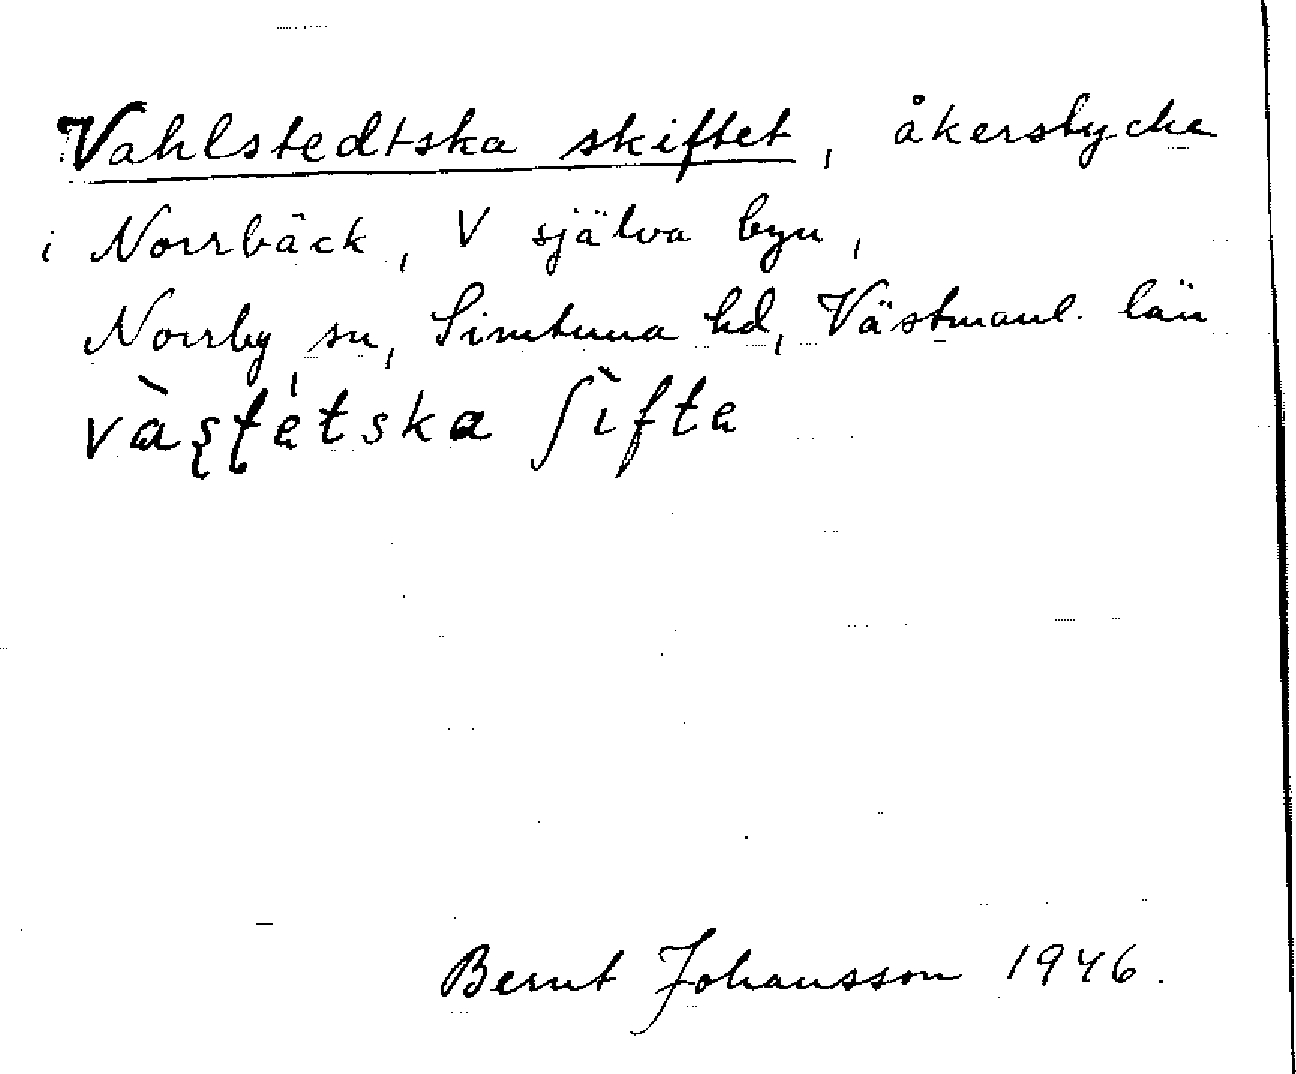 Vahlstedtska skiftet, åkerstycke
i Norrbäck, V själva byn,
Norrby sn, Simtuna hd, Västmanl. län
vàʂʈétska ʃìfte
Bernt Johansson 1946.